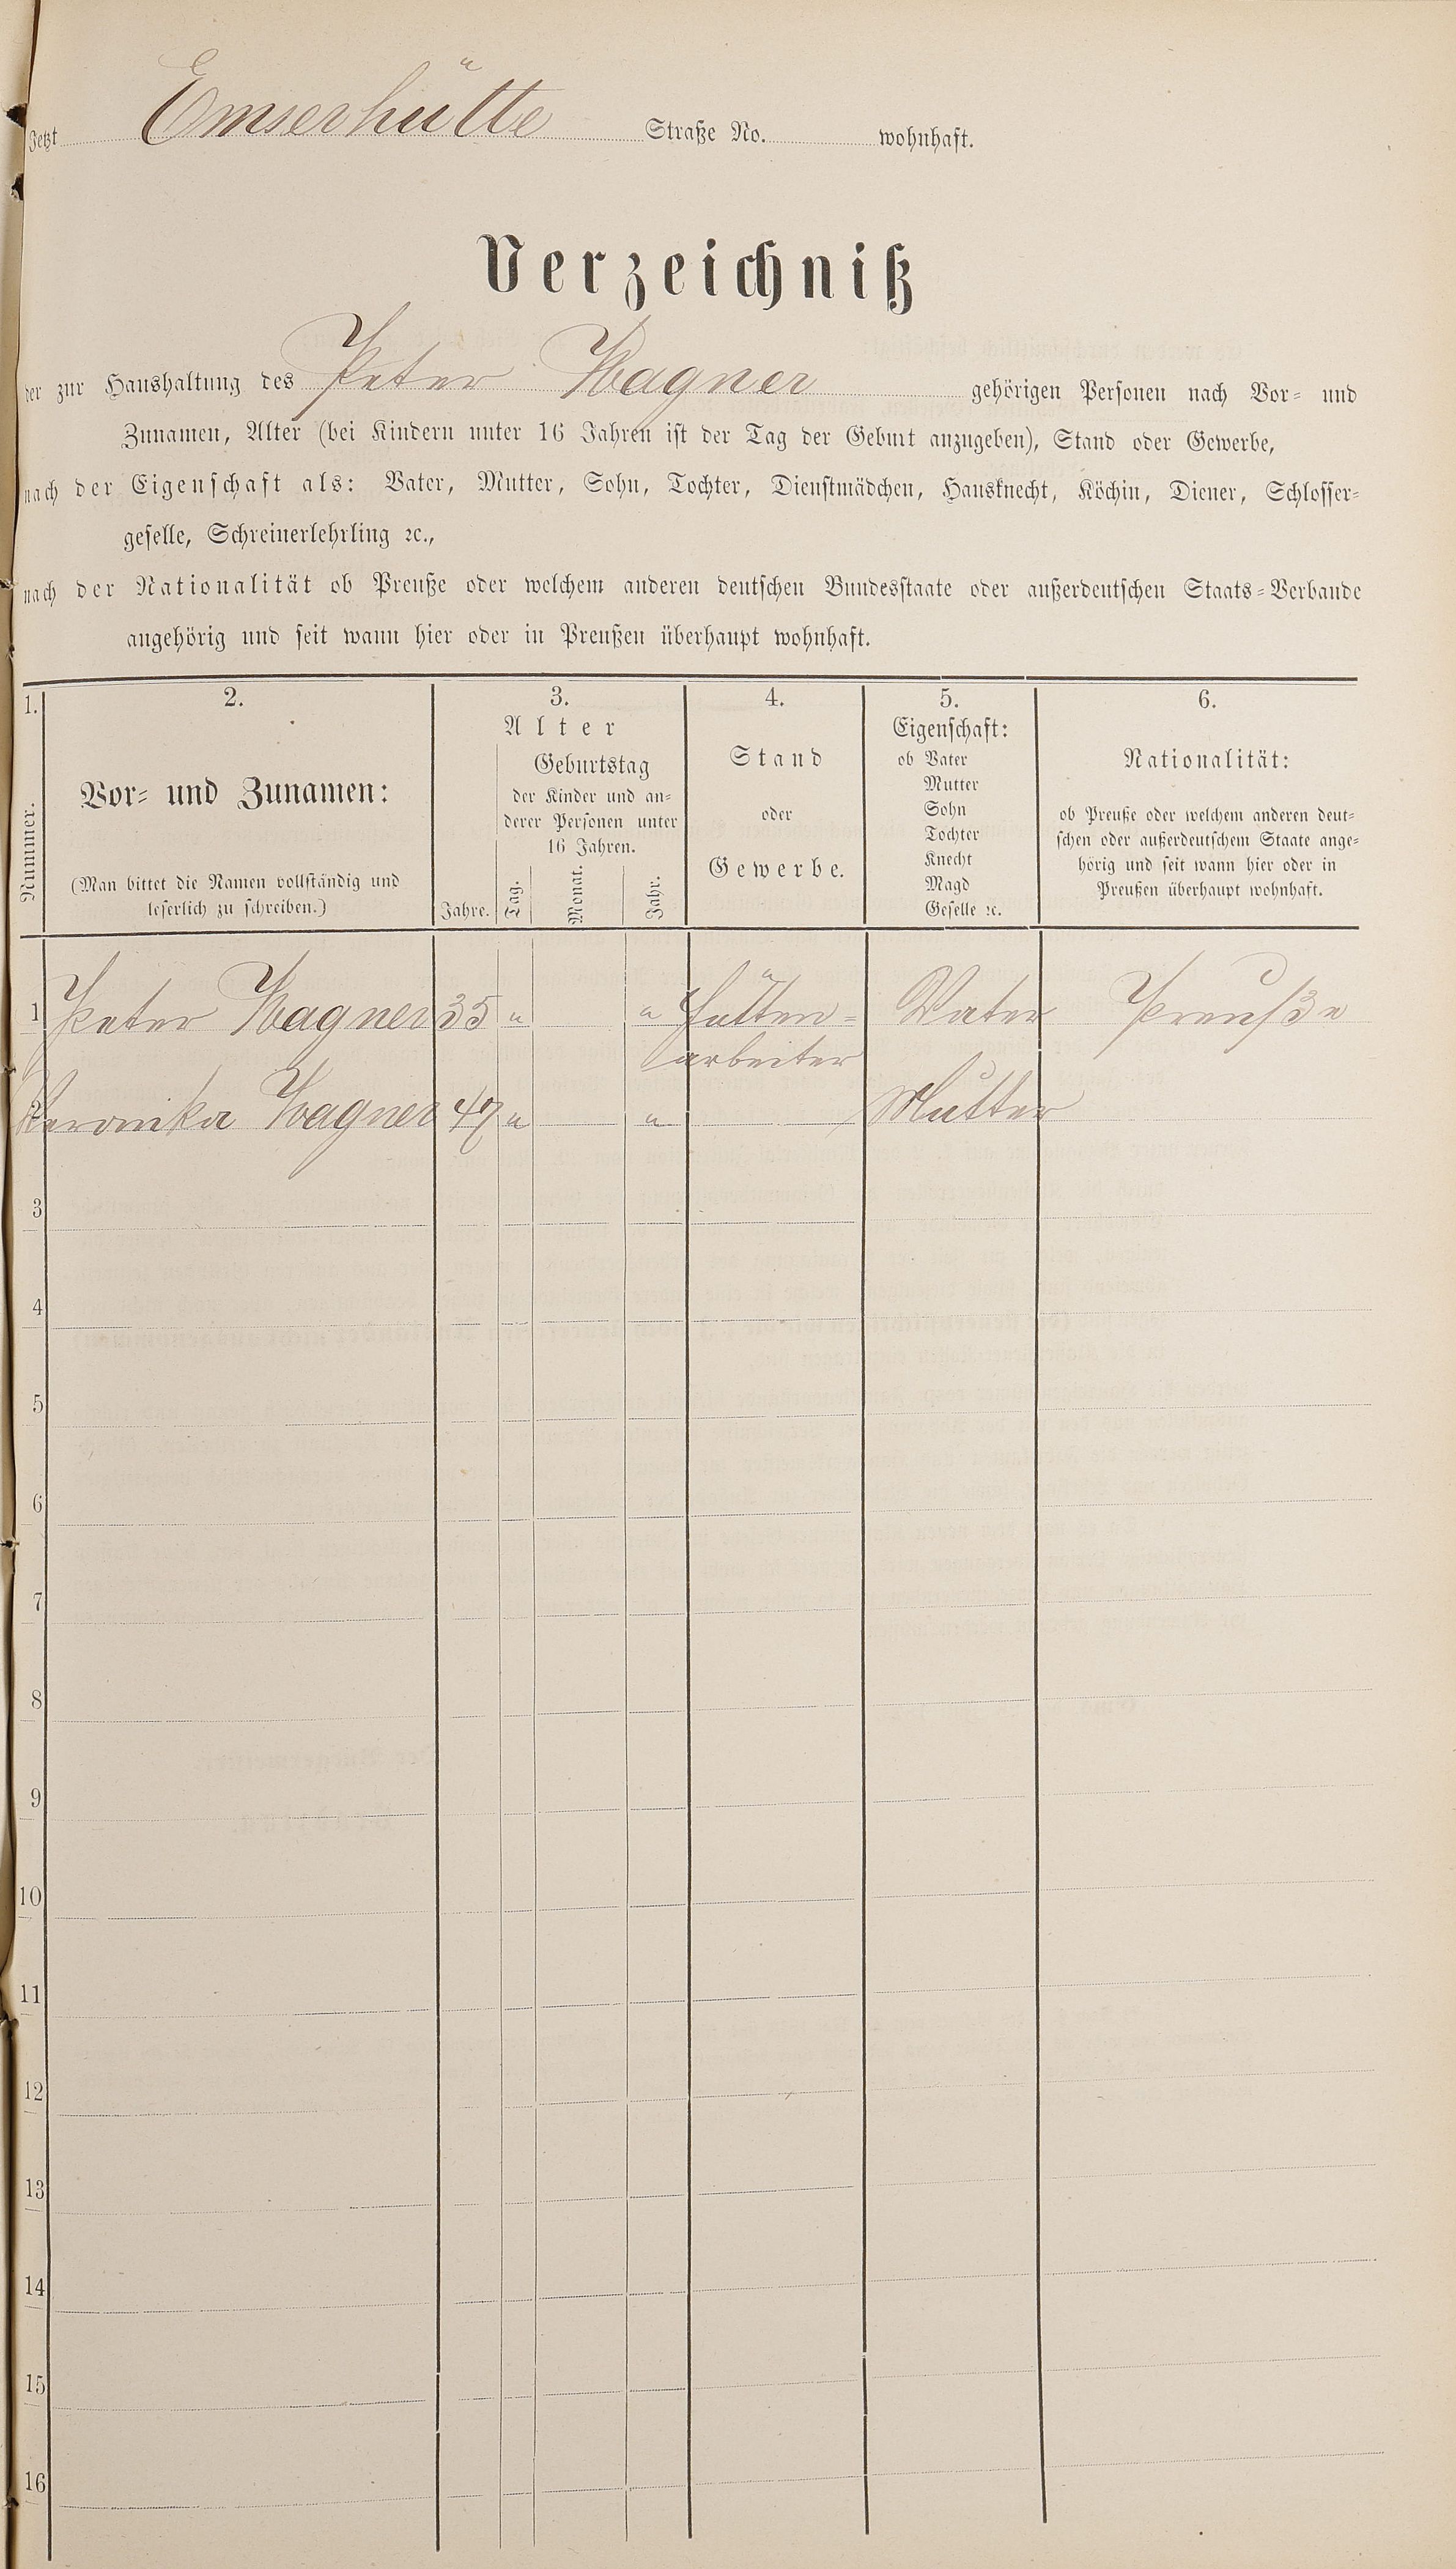 Jetzt Emserhütte Straße No. wohnhaft.
Verzeichniß
der zur Haushaltung des Peter Wagner gehörigen Personen nach Vor- und
Zunamen, Alter (bei Kindern unter 16 Jahren ist der Tag der Geburt anzugeben), Stand oder Gewerbe,
nach der Eigenschaft als: Vater, Mutter, Sohn, Tochter, Dienstmädchen, Hausknecht, Köchin, Diener, Schlosser-
geselle, Schreinerlehrling ꝛc.,
nach der Nationalität ob Preuße oder welchem anderen deutschen Bundesstaate oder außerdeutschen Staats-Verbande
angehörig und seit wann hier oder in Preußen überhaupt wohnhaft.
1.
Nummer.
2.
Vor- und Zunamen:
(Man bittet die Namen vollständig und
leserlich zu schreiben.)
3.
Alter
Geburtstag
der Kinder und an-
derer Personen unter
16 Jahren.
Jahre. Tag. Monat. Jahr.
4.
Stand
oder
Gewerbe.
5.
Eigenschaft:
ob Vater
Mutter
Sohn
Tochter
Knecht
Magd
Geselle ꝛc.
6.
Nationalität:
ob Preuße oder welchem anderen deut-
schen oder außerdeutschem Staate ange-
hörig und seit wann hier oder in
Preußen überhaupt wohnhaft.
1 Peter Wagner 35 " " Hütten- Vater Preuße
arbeiter
2 Veronika Wagner 47 " " Mutter
3
4
5
6
7
8
9
10
11
12
13
14
15
16